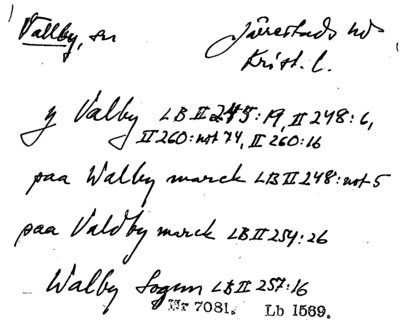 Vallby, sn Järrestads hd
Krist. l.
y Valby LB II 245:19, II 248:6,
II 260:not 74, II 260:16
paa Walby marck LB II 248:not 5
paa Valdby marck LB II 254:26
Walby Sogen LB II 257:16
Nr 7081. Lb 1569.